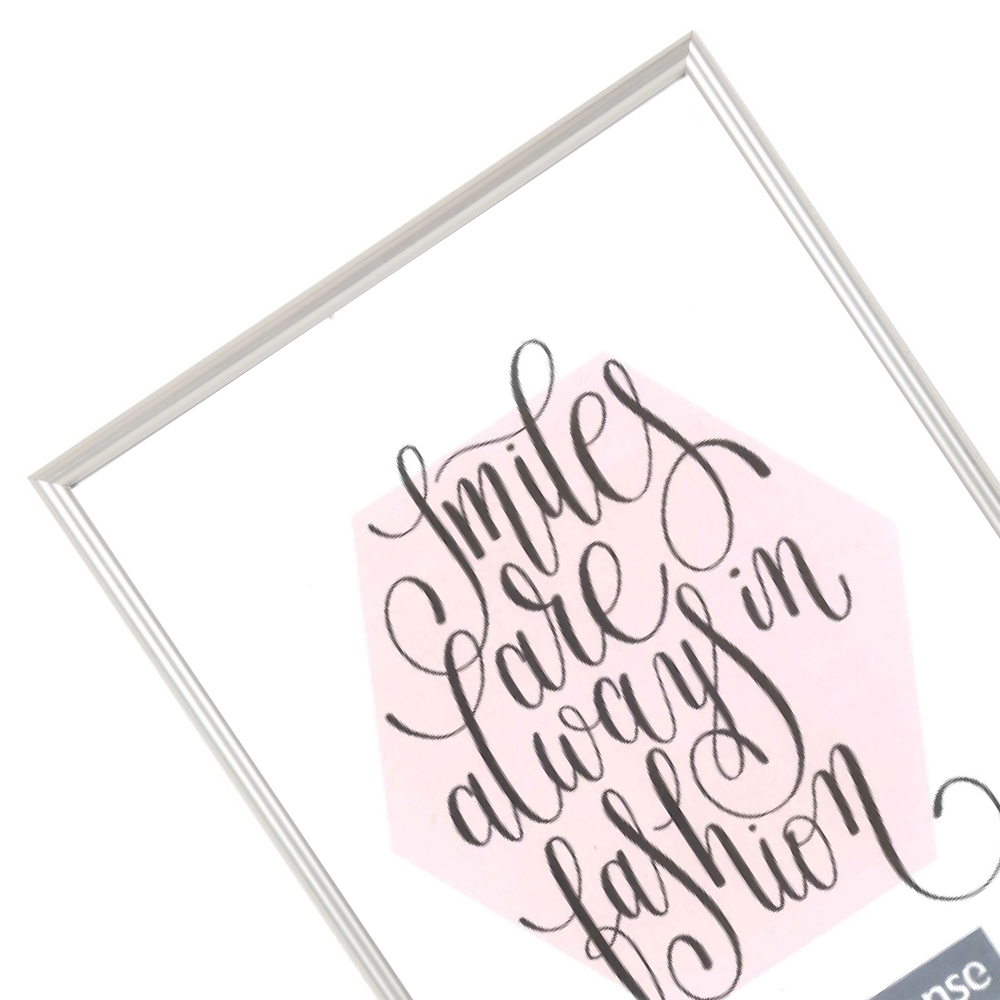 Smiles
are
always in
fashion